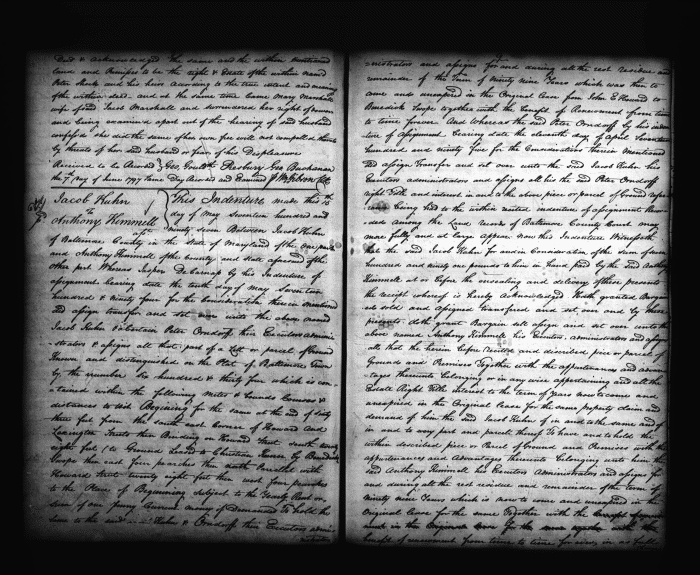 Deed & acknowledged the same and the within mentioned
land and Premises to be the right & Estate of the within named
Peter Sheetz and his heirs According to the true intent and meaning
of the within deed, and at the same time came Mary Marshall
wife of said Jacob Marshall and surrendered her right of dower
and being examined apart out of the hearing of said husband
confessed she did the same of her own free will not compelled thereto
by threats of her said husband or fear of his Displeasure
Received to be Recorded Geo. Gould Presbury Geo Buchanan
the 7th day of June 1797 Same Day Record and Examined Wm Gibson Clk
Jacob Kuhn
To
Anthony Himmell
This Indenture made this
day of May seventeen hundred and
ninety seven Between Jacob Kuhn
of Baltimore County in the State of Maryland of the one part
and Anthony Himmell of the County and State aforesaid of the
other part Whereas by his Indenture of
assignment bearing date the tenth day of May Seventeen
hundred & ninety four for the Consideration therein mentioned
Did assign transfer and set over unto the above named
Jacob Kuhn & a certain Peter Orndorff their Executors admini
-strators & assigns all that part of a Lott or parcel of Ground
known and distinguished on the Plat of Baltimore Town
by the number Six hundred & thirty four which is con-
-tained within the following metes & bounds Courses &
distances to wit Beginning for the same at the end of sixty
three feet from the south east Corner of Howard and
Lexington Streets then Binding on Howard Street south twenty
eight feet to Ground Leased to Christian by
then east four perches then north Parallel with
Howard Street twenty eight feet then west four perches
to the Place of Beginning Subject to the Yearly Rent or
sum of one penny Current money if Demanded To hold the
same to the said Kuhn & Orndorff their Executors admini
-nistrators and assigns for and during all the rest residue and
remainder of the Term of Ninety nine Years which was then to
come and unexpired in the Original Lease from John E Howard to
together with the benefit of Renewment from time
to time forever And Whereas the said Peter Orndorff by his inden
-ture of assignment bearing date the eleventh day of April Seventeen
hundred and ninety five for the Consideration therein mentioned
Did assign transfer and set over unto the said Jacob Kuhn his
Executors administrators and assigns all his the said Peter Orndorff
right title and interest in and to the above piece or parcel of Ground
being had to the within recited indenture of assignment Recor
-ded among the Land records of Baltimore County Court may
more fully and at large appear Now this Indenture Witnesseth
that the said Jacob Kuhn for and in Consideration of the sum of
hundred and ninety one pounds to him in hand paid by the said Anthony
Himmell at or before the ensealing and delivery of these presents
the receipt whereof is hereby Acknowledged Hath granted Bargain
-ed sold and assigned transfered and set over and by these
presents doth grant Bargain sell assign and set over unto the
above named Anthony Himmell his Executors administrators and assigns
all that the herein before mention and described piece or parcel of
Grounds and Premises Together with the appurtenances and advan
-tages thereunto belonging or in any wise appertaining and all the
Estate Right Title interest to the term of years yet to come and
unexpired in the Original Lease for the same property claim and
demand of him the said Jacob Kuhn of in and to the same and of
in and to every part and parcel thereof To have and to hold the
within described piece or Parcel of Ground and Premises with the
appurtenances and Advantages thereunto belonging unto him the
said Anthony Himmell his Executors Administrators and assigns for
and during all the rest residue and remainder of the term of
Ninety nine Years which is now to come and unexpired in the
Original Lease for the same Together with the
benefit of renewment from time to time for ever, in as full